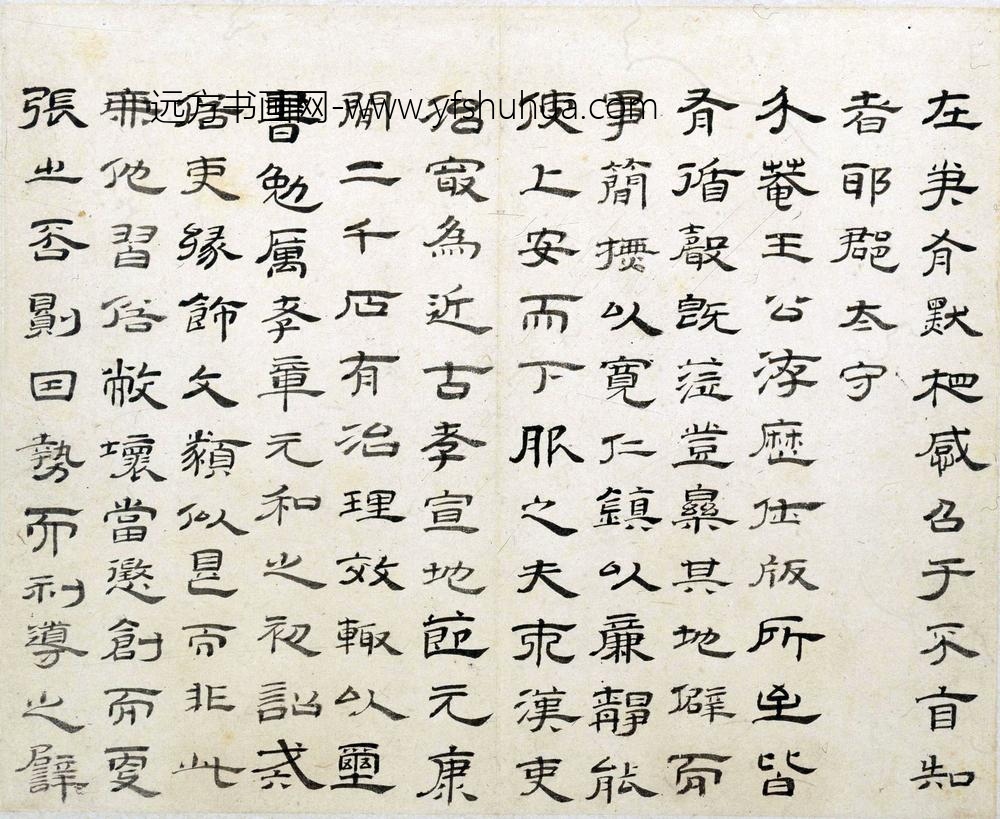 在有默杷感召于不自知
者耶郡太守
禾菴王公洊歷仕版所至皆
有循聲既蒞其地僻而
事簡撫以寬仁鎮以廉靜能
使上安而下服之夫東漢吏
治最為近古孝宣地節元康
間二千石有治理效輒以璽
書勉厲孝章元和之初詔戒
俗吏緣飾文類似是而非此
無他習俗敝壞當懲創而更
張之否則因勢而利導之譬
远方书画网-www.yfshuhua.com